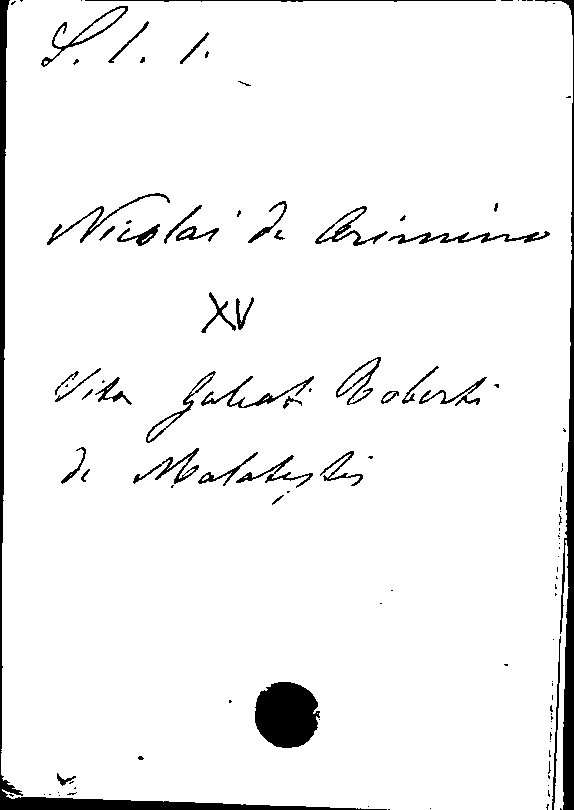 S. 1. 1.
Nicolai de Arimino
XV
Vita Galeoti Roberti
de Malatestis